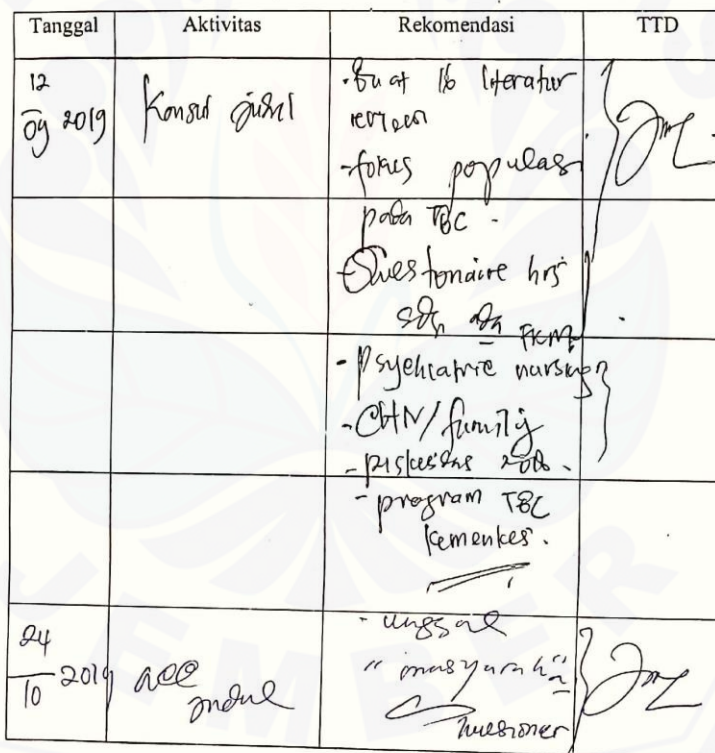 Tanggal Aktivitas Rekomendasi TTD
12
09 2019 Konsul judul
- Buat 16 literatur
review
- fokus populasi
pada TBC -
- Questionaire hrs
sdh ada
FKM
- Psychiatric nursing
- CHN/family
- Riskesdas 2018.
- program TBC
kemenkes.
24
10 2019 acc
judul
- unggul
"masyarakat"
kuesioner
JEMBER